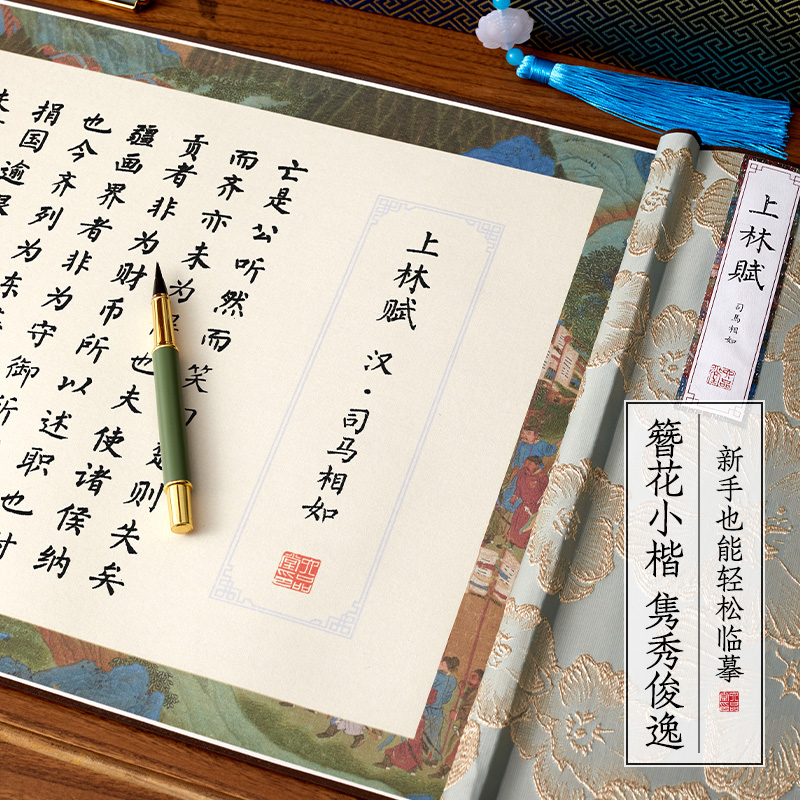 上林赋
汉·司马相如
亡是公听然而笑则失矣
而齐亦未为也夫使诸侯纳
贡者非为财币所以述职也封
疆画界者非为守御所
也今齐列为东
捐国逾限
上林赋
司马相如
新手也能轻松临摹
簪花小楷 隽秀俊逸